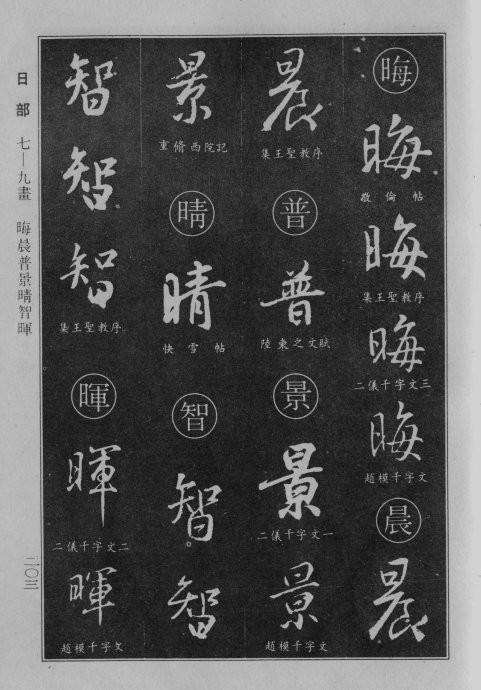 晦
晦
敬倫帖
晦
集王聖教序
晦
二儀千字文三
晦
趙模千字文
晨
晨
晨
集王聖教序
普
普
陸柬之文賦
景
景
二儀千字文一
景
趙模千字文
景
重脩西院記
晴
晴
快雪帖
智
智
智
智
智
智
集王聖教序
暉
暉
二儀千字文二
暉
趙模千字文
日部 七—九畫 晦晨普景晴智暉
二〇三